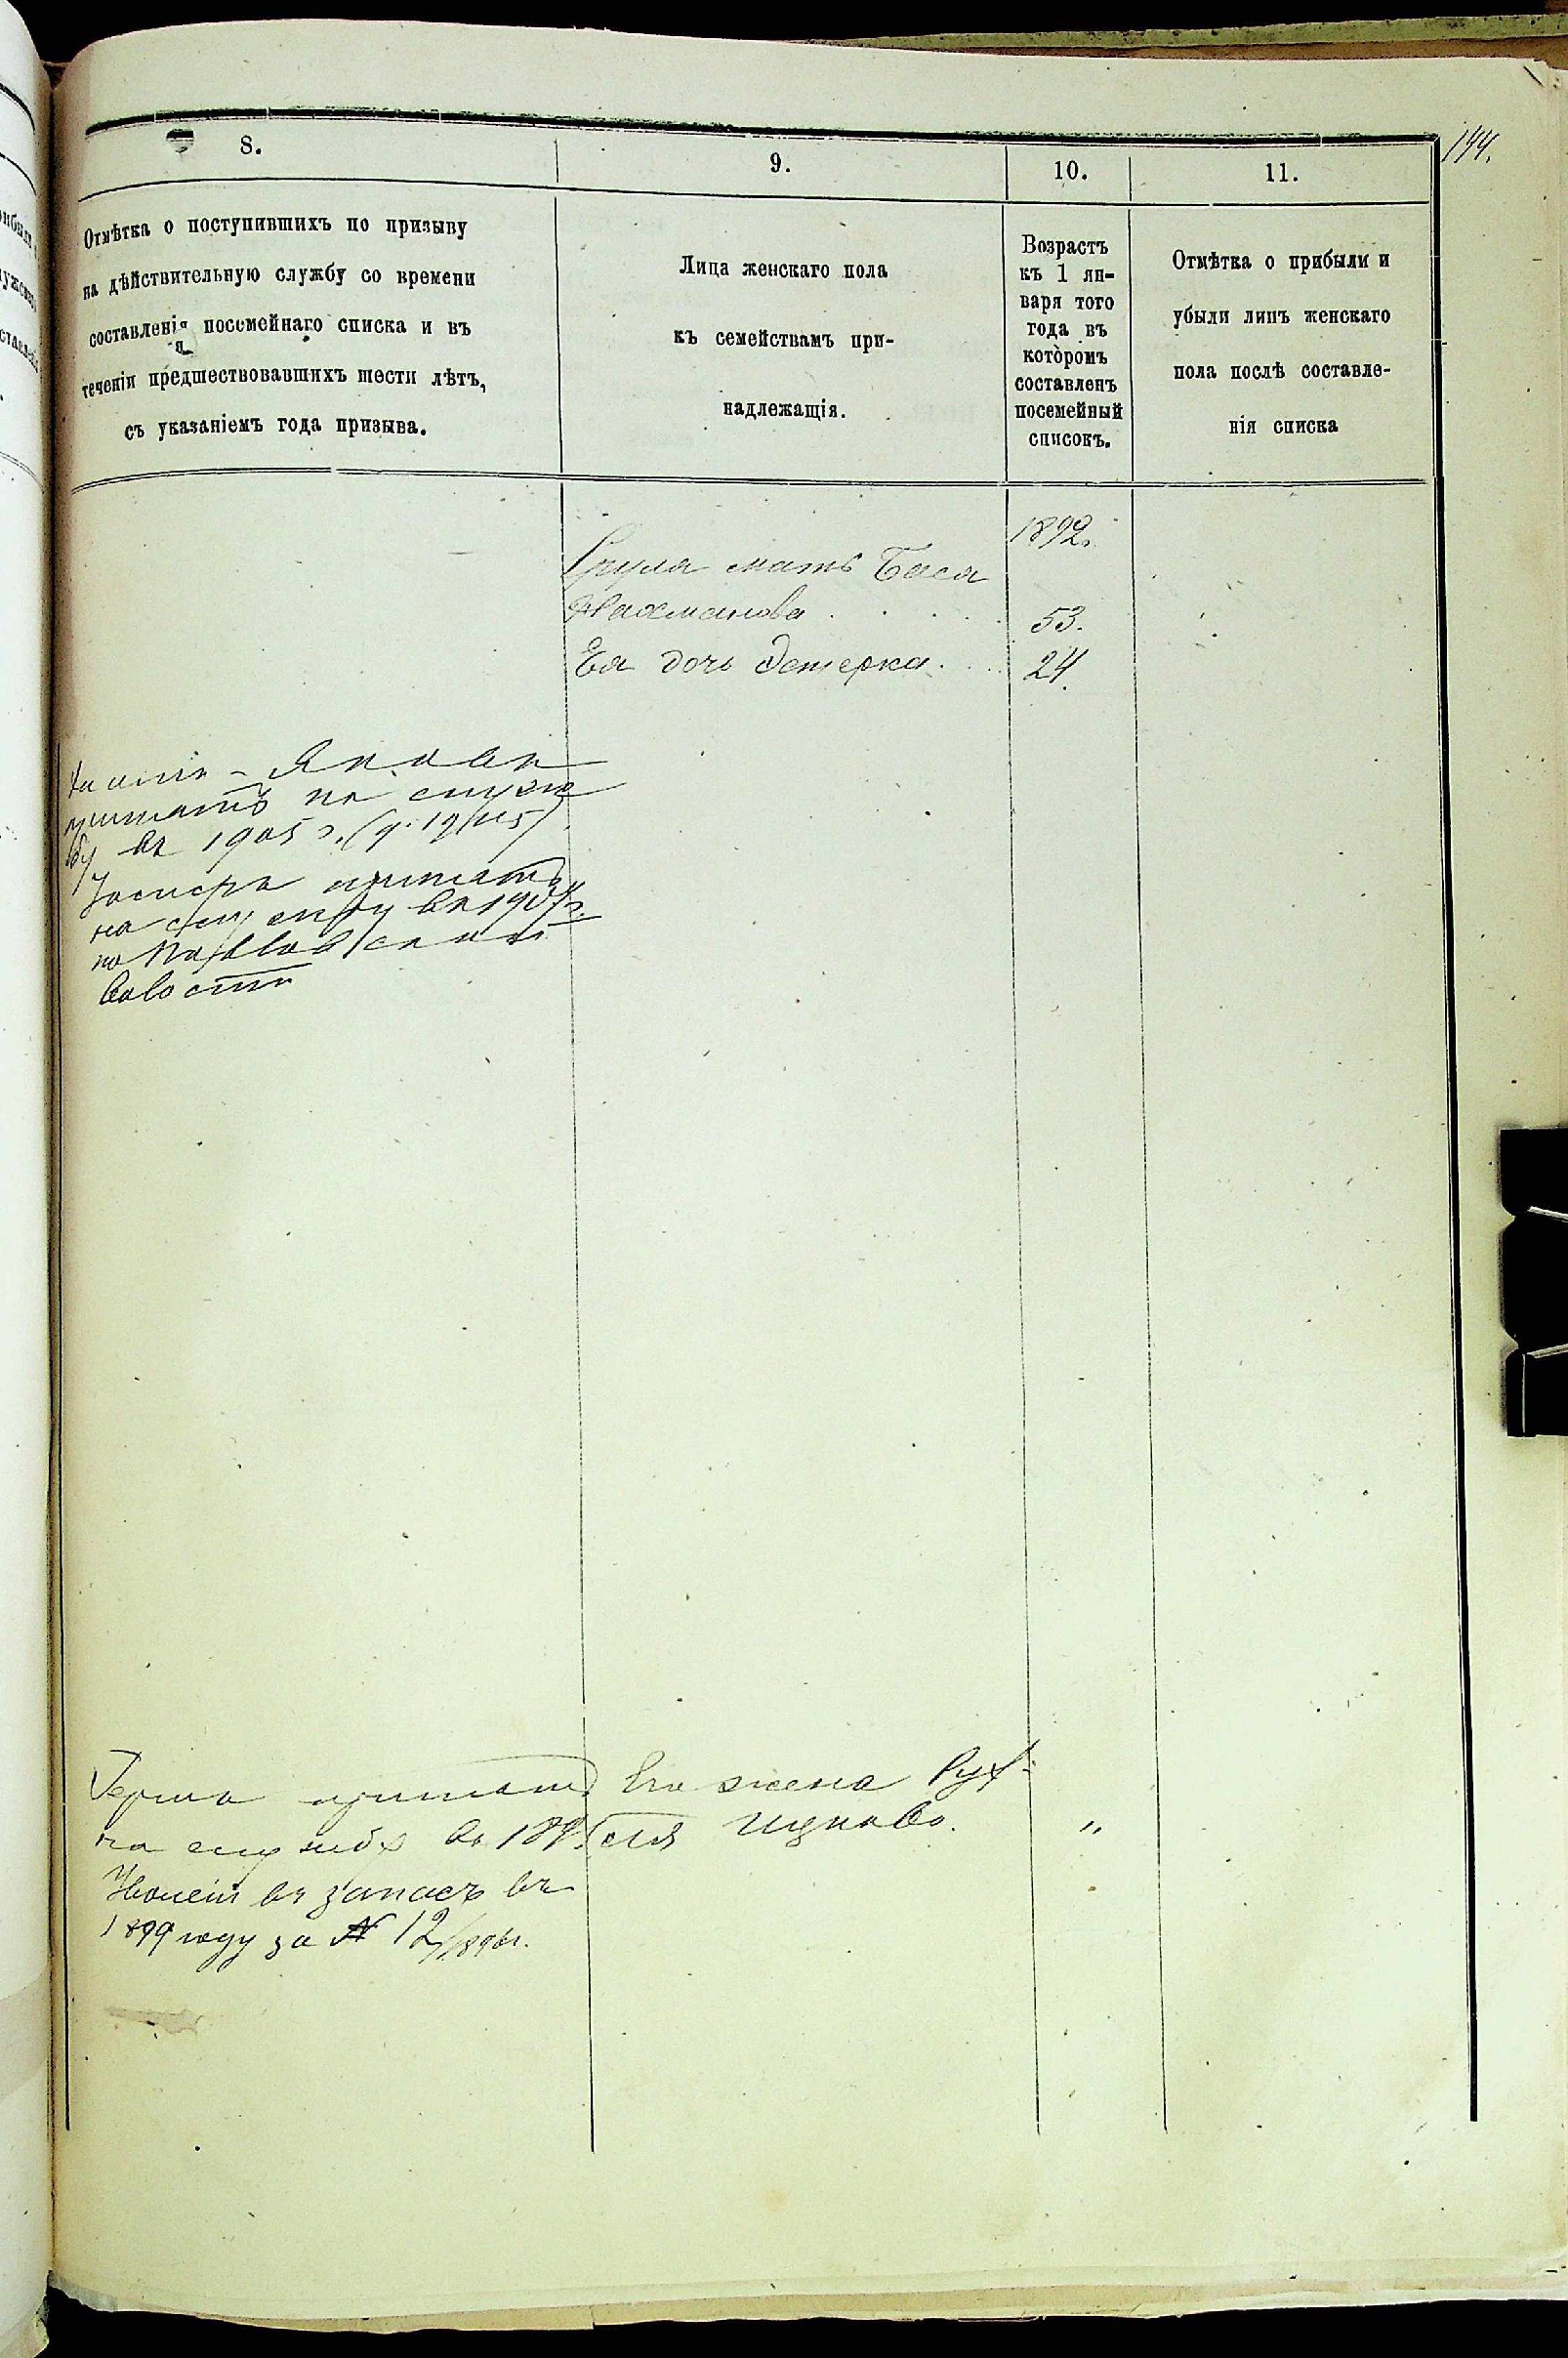 144.
8.
9.
10.
11.
Отмѣтка о поступившихъ по призыву
на дѣйствительную службу со времени
составленія посемейнаго списка и въ
теченіи предшествовавшихъ шести лѣтъ,
съ указаніемъ года призыва.
Лица женскаго пола
къ семействамъ при-
надлежащія.
Возрастъ
къ 1 ян-
варя того
года въ
которомъ
составленъ
посемейный
списокъ.
Отмѣтка о прибыли и
убыли лицъ женскаго
пола послѣ составле-
нія списка
1892г.
Сруля мать Бася
Нахманова . . . . 53.
Ея дочь Эстерка . . . 24.
принятъ на служ
бу въ 1905 г.
принятъ
на службу въ
по
волости
Герша принятъ
на службу въ 189
Уволенъ въ запасъ въ
1899 году за № 12/1896г.
Его жена Рух-
ля Ицкова. "